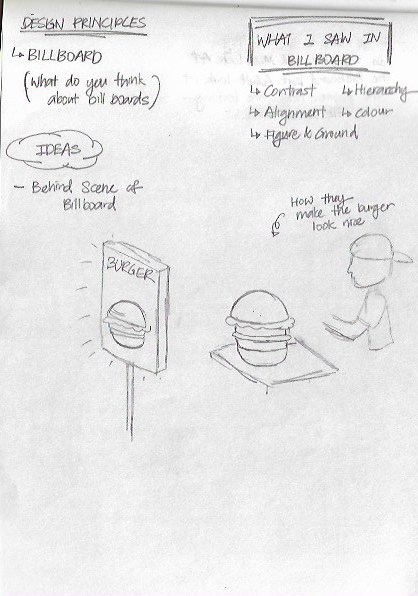 DESIGN PRINCIPLES
↳ BILLBOARD
(What do you think
about bill boards)
IDEAS
- Behind Scene of
Billboard
WHAT I SAW IN
BILLBOARD
↳ Contrast ↳ Hierarchy
↳ Alignment ↳ colour
↳ Figure & Ground
How they
make the burger
look nice
BURGER